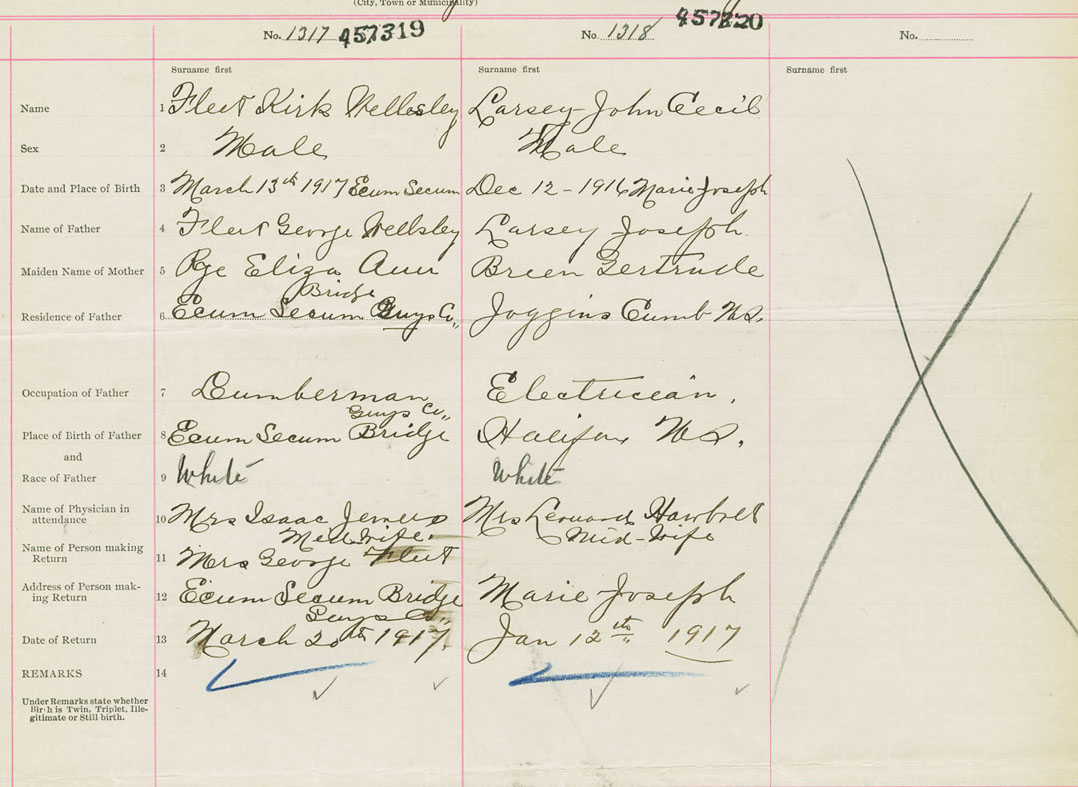 (City, Town or Municipality)
No. 1317 457319 No. 1318 457320 No.
Surname first Surname first Surname first
Name 1 Fleet Kirk Wellesley Larsey John Cecil
Sex 2 Male Male
Date and Place of Birth 3 March 13th 1917 Ecum Secum Dec 12 - 1916 Marie Joseph
Name of Father 4 Fleet George Wellsley Larsey Joseph
Maiden Name of Mother 5 Pye Eliza Ann Breen Gertrude
Bridge
Residence of Father 6 Ecum Secum Guys Co,, Joggins Cumb N.S.
Occupation of Father 7 Lumberman Electricean.
Guys Co,,
Place of Birth of Father 8 Ecum Secum Bridge Halifax N.S.
and
Race of Father 9 White White
Name of Physician in
attendance 10 Mrs Isaac Mrs Leonard
Mid-Wife. Mid-Wife
Name of Person making
Return 11 Mrs George Fleet
Address of Person mak-
ing Return 12 Ecum Secum Bridge Marie Joseph
Guys Co,,
Date of Return 13 March 20th 1917. Jan 12th 1917
REMARKS 14
Under Remarks state whether
Birth is Twin, Triplet, Ille-
gitimate or Still birth.